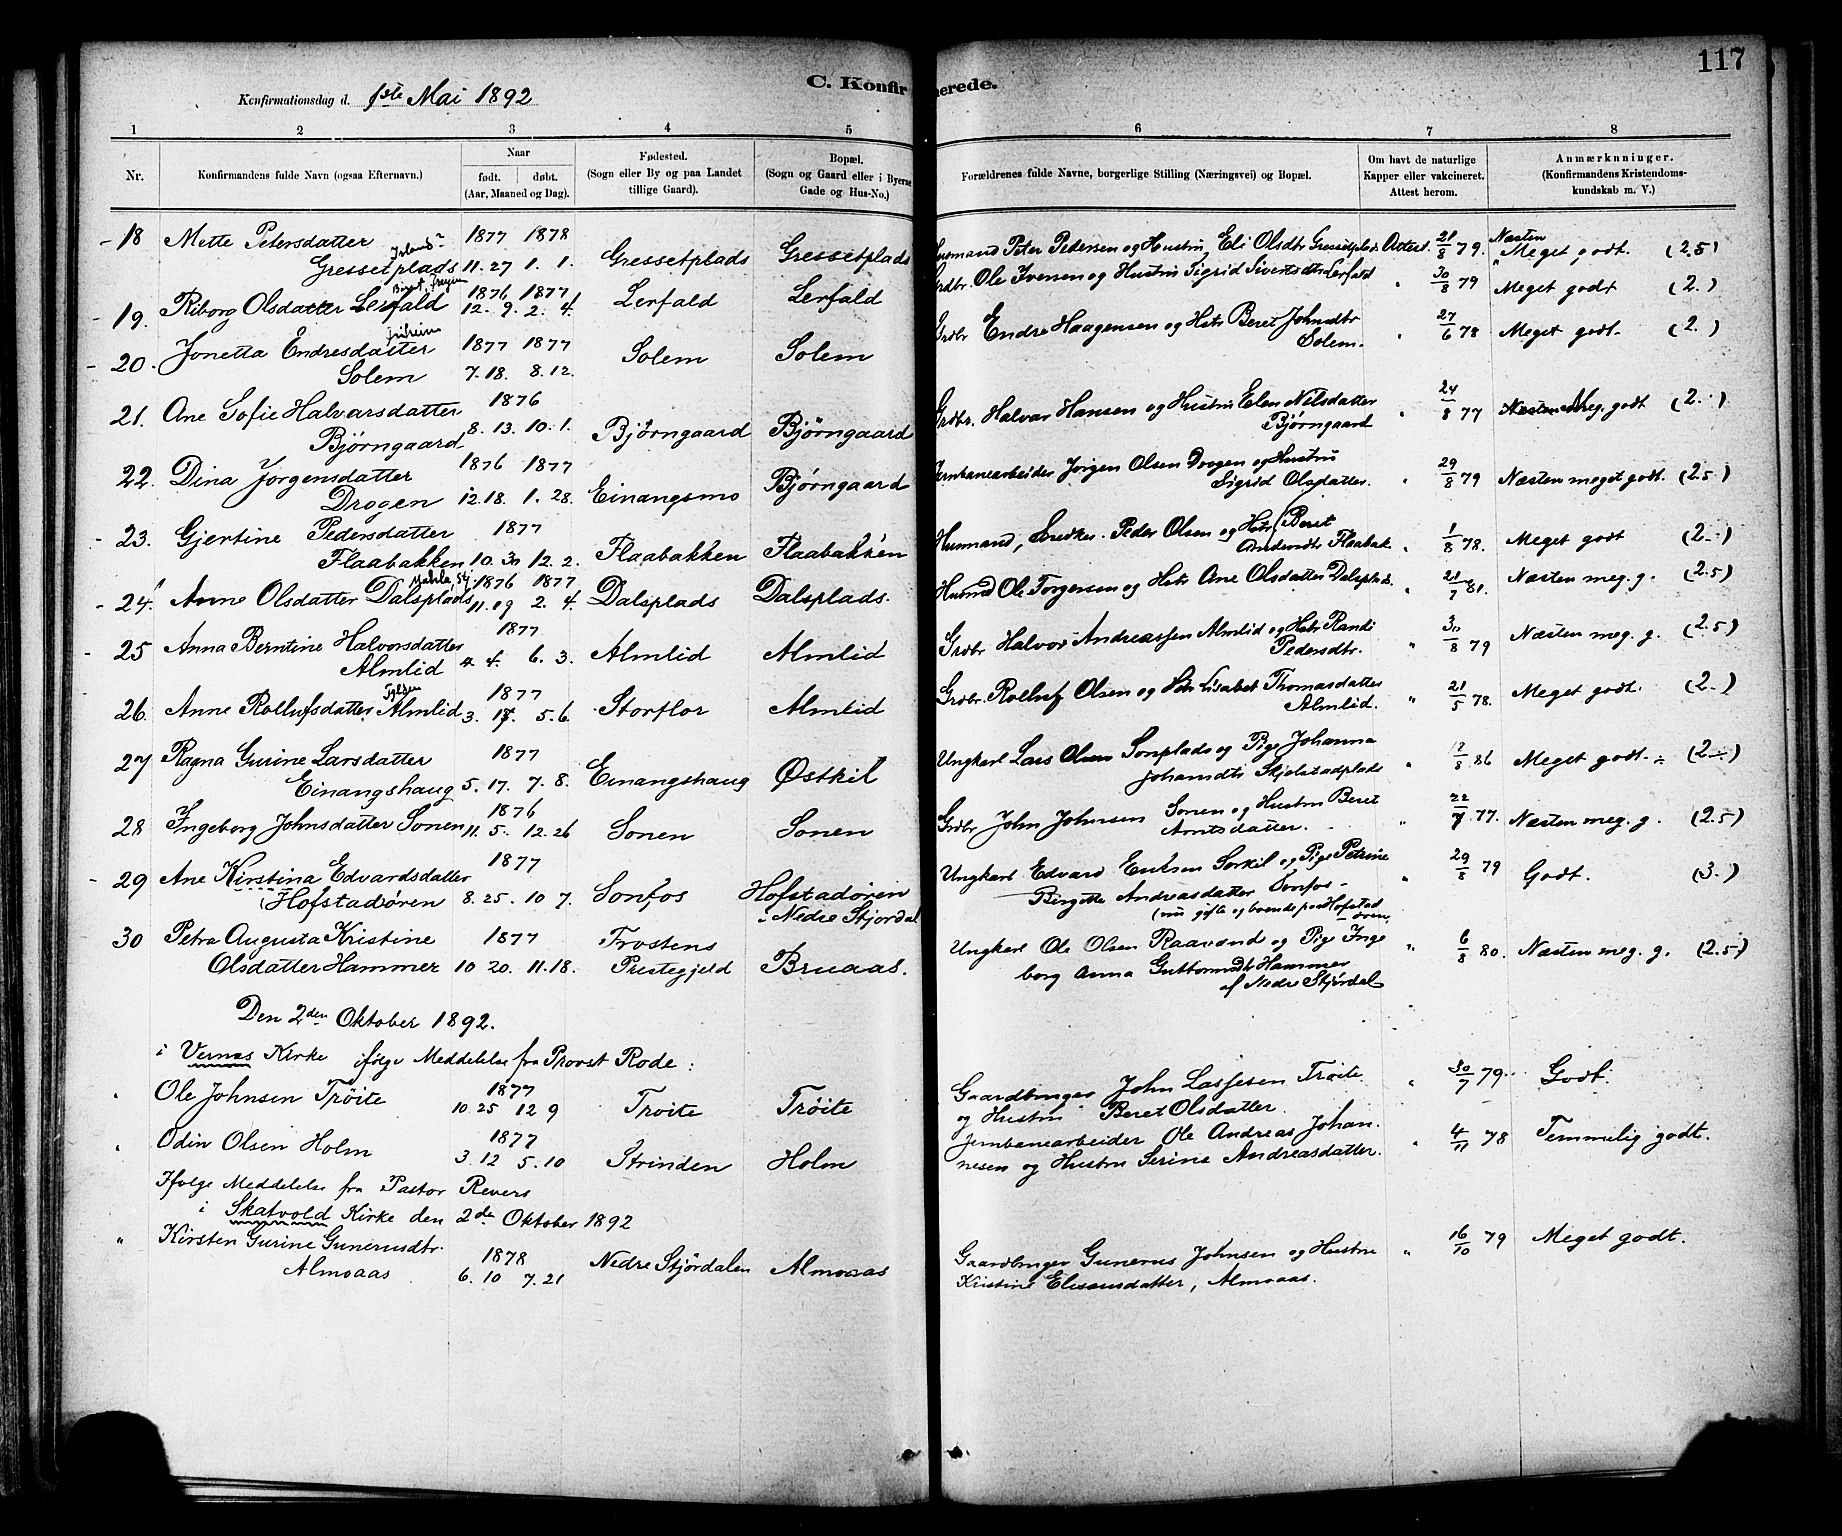 117
C. Konfir merede.
Konfirmationsdag d. 1ste Mai 1892
1 2 3 4 5 6 7 8
Nr. Konfirmandens fulde Navn (ogsaa Efternavn.) Naar født. døbt. (Aar, Maaned og Dag). Fødested. (Sogn eller By og paa Landet tillige Gaard). Bopæl. (Sogn og Gaard eller i Byerne Gade og Hus-No.) Forældrenes fulde Navne, borgerlige Stilling (Næringsvei) og Bopæl. Om havt de naturlige Kapper eller vakcineret. Attest herom. Anmærkninger. (Konfirmandens Kristendoms-kundskab m. V.)
18 Mette Petersdatter 1877 1878 Husmand Peter Pedersen og Hustru Eli Olsdtr Gressetplads Attest. 21/8 79. Næsten Meget godt. (2.5)
Gressetplads 11.27 1.1. Gressetplads Gressetplads
19. Riborg Olsdatter Lerfald 1876 1877 Lerfald Lerfald Grdbr. Ole Iversen og Hustru Sigrid Sivertsdtr Lerfald " 30/8 79 Meget godt (2.)
12. 9. 2. 4.
20. Jonetta Endresdatter 1877 1877 Solem Solem Grdbr Endre Haagensen og Hstr Beret Johnsdtr " 27/6 78 Meget godt. (2.)
Solem 7.18. 8.12. Solem.
21. Ane Sofie Halvarsdatter 1876 Grdbr. Halvar Hansen og Hustru Elen Nilsdatter " 24/8 77 Næsten Meg. godt (2.)
Bjørngaard 8.13. 10.1. Bjørngaard Bjørngaard Bjørngaard
22. Dina Jørgensdatter 1876 1877 Jernbanearbeider Jørgen Olsen Drogen og Hustru " 29/8 79 Næsten meget godt. (2.5)
Drogen 12.18. 1.28. Einangsmo Bjørngaard Sigrid Olsdatter.
23. Gjertine Pedersdatter 1877 Husmand, Snedker. Peder Olsen og Hstr Beret " 1/8 78. Meget godt (2.)
Flaabakken 10.30 12.2. Flaabakken Flaabakken Andersdtr Flaabak.
24. Anne Olsdatter Dalsplads 1876 1877 Dalsplads Dalsplads. Husmd Ole Torgersen og Hstr Ane Olsdatter Dalsplads. " 81. Næsten meg. g. (2.5)
11.19 2. 4.
25 Anna Berntine Halvorsdatter 1877 Grdbr Halvor Andreassen Almlid og Hstr Randi " 30/8 79 Næsten meg. g. (2.5)
Almlid 4. 4. 6. 3. Almlid Almlid Pedersdtr.
26. Anne Rollufsdatter Almlid 1877 Storflor Almlid Grdbr. Rolluf Olsen og Hstr Lisabet Thomasdatter " 21/5 78. Meget godt. (2.)
3. 5.6. Almlid.
27 Ragna Gurine Larsdatter 1877 Ungkarl Lars Olsen Sonplads og Pige Johanna " 12/8 86 Meget godt. (2.)
Einangshaug 5. 17. 7. 8. Einangshaug Østkil Johansdtr Skjelstadplads
28 Ingeborg Johnsdatter Sonen 1876 Sonen Sonen Grdbr John Johnsen Sonen og Hustru Beret " 22/7 77. Næsten meg. g. (2.5)
11. 5. 12. 26 Arntsdatter.
29 Ane Kirstina Edvardsdatter 1877 Ungkarl Edvard Eriksen Sorkil og Pige Petrine " 29/8 79 Godt. (3.)
(Hofstadøren 8. 25. 10 7. Sonfos Hofstadøren i Nedre Stjørdal Birgitte Andreasdatter Sonfos
(nu gifte og boende paa Hofstadøren)
30 Petra Augusta Kristine 1877 Frostens Ungkarl Ole Olsen Raavand og Pige Inge " 6/8 80. Næsten meg. g. (2.5)
Olsdatter Hammer 10 20. 11.18. Prestegjeld Bruaas. borg Anna Guttormsdtr Hammer
af Nedre Stjørdal
Den 2den Oktober 1892.
i Vernes Kirke ifølge Meddelelse fra Provst Rode:
" Ole Johnsen Trøite 1877 Trøite Trøite Gaardbruger John Lassesen Trøite " 30/7 79 Godt.
10 25 12 9 og Hustru Beret Olsdatter.
" Odin Olsen Holm 1877 Strinden Holm Jernbanearbeider Ole Andreas Johan. " 4/11 78 Temmelig godt.
3. 12 5. 10 nesen og Hustru Serine Andreasdatter.
Ifølge Meddelelse fra Pastor Revers
i Skatvold Kirke den 2de Oktober 1892
" Kirsten Gurine Gunerusdtr. 1878 Nedre Stjørdalen Almoaas Gaardbruger Gunerus Johnsen og Hustru " 16/10 79 Meget godt.
Almoaas 6. 10 7. 21 Kristine Eliseusdatter, Almoaas.